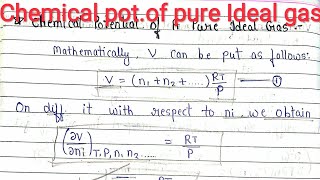 Chemical pot.of pure Ideal gas
* Chemical Potential Of A Pure Ideal Gas:-
Mathematically V can be put as follows:
V = (n₁+n₂+.....) RT/P —①
On diff. it with respect to ni we obtain
(∂V/∂ni)T,P,n₁,n₂..... = RT/P